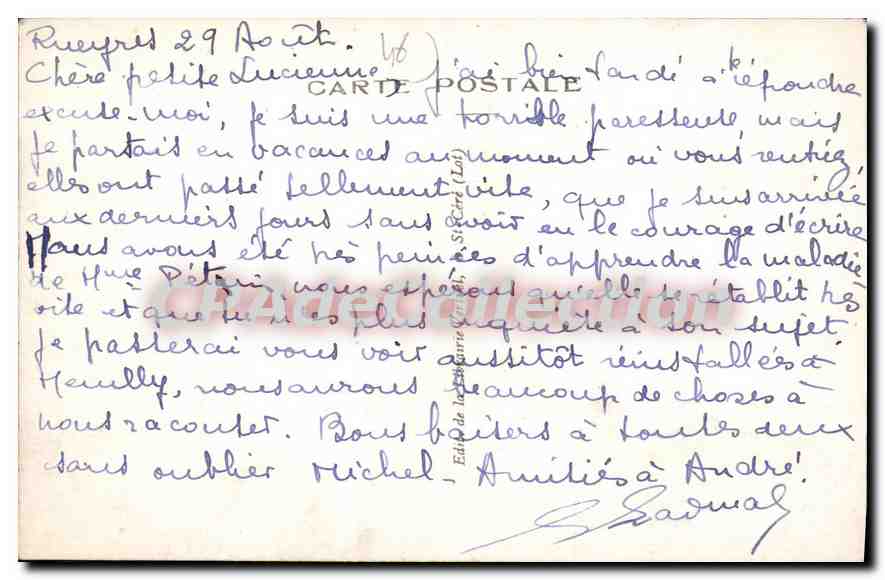 Rueyres 29 Août. 46
Chère petite Lucienne, j'ai bien tardé à te répondre
CARTE POSTALE
excuse-moi, je suis une horrible paresseuse, mais
je partais en vacances au moment où vous rentriez,
elles ont passé tellement vite, que je suis arrivée
aux derniers jours sans avoir eu le courage d'écrire
Nous avons été très peinées d'apprendre la maladie
de Mme nous espérons qu'elle se rétablit très
vite et que tu n'es plus inquiète à son sujet
je passerai vous voir aussitôt réinstallées à
Neuilly, nous aurons beaucoup de choses à
nous raconter. Bons baisers à toutes deux
sans oublier Michel - Amitiés à André.
Edit. de la Librairie St-Céré (Lot)
CPADeCollection